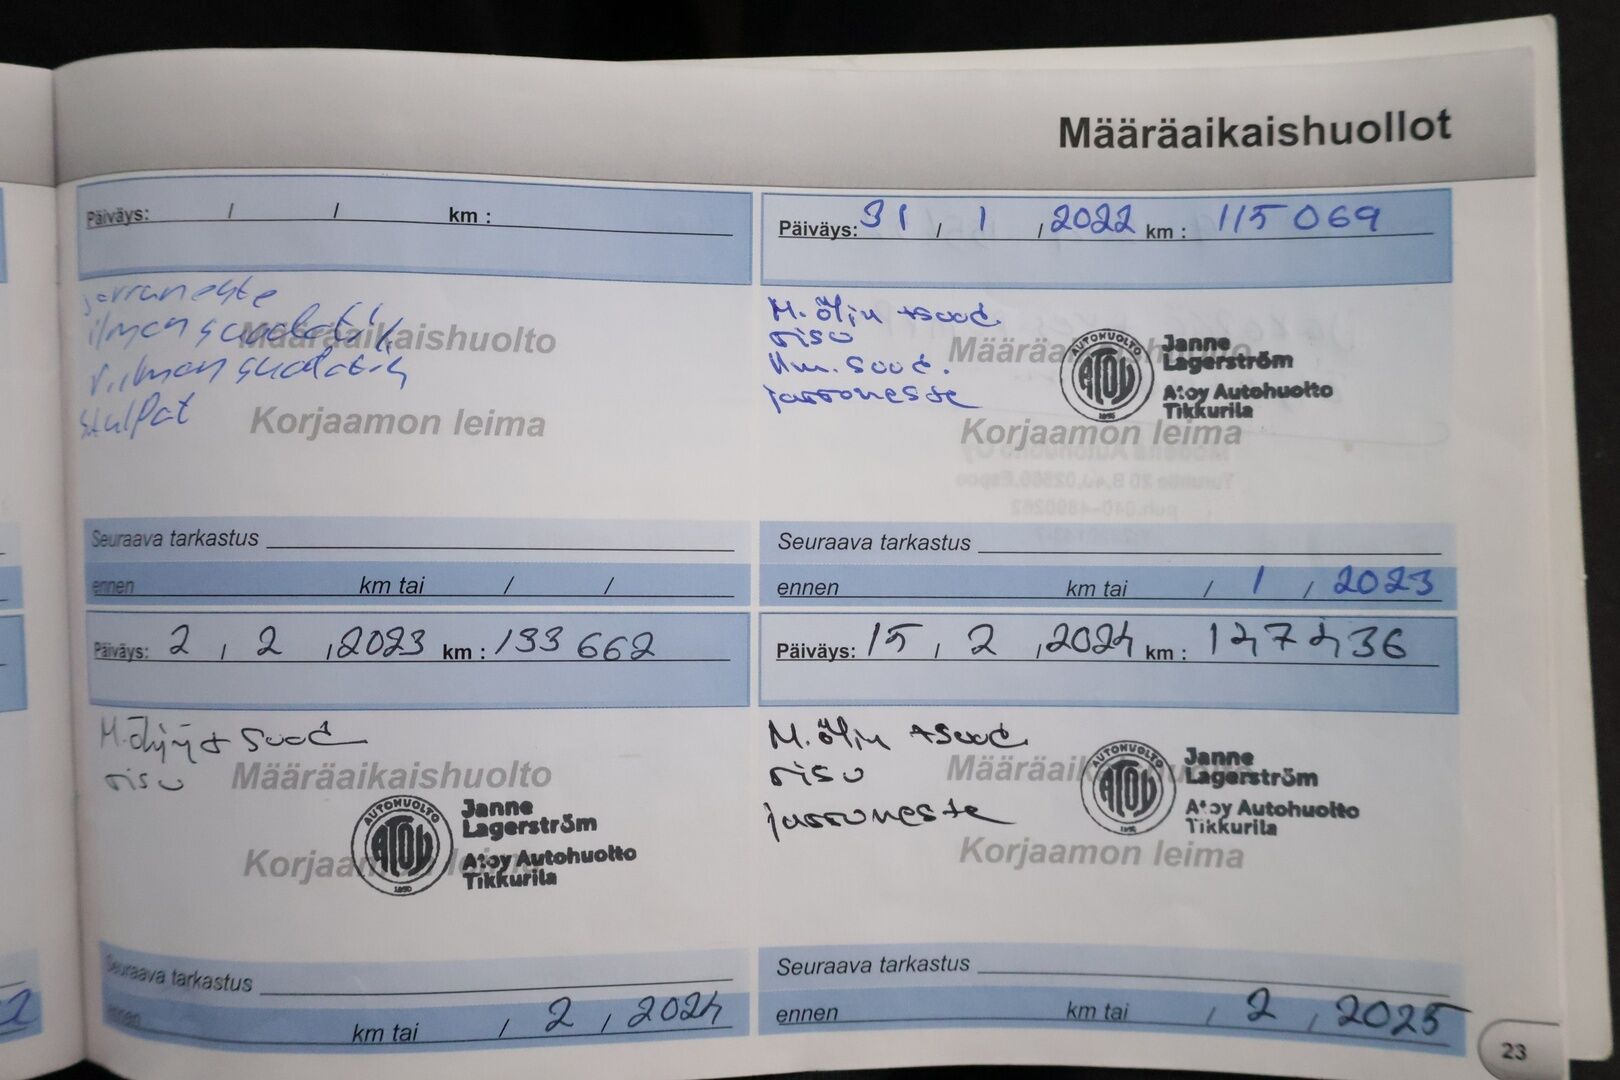 Määräaikaishuollot
Päiväys: / / km :
jarruneste
ilmansuodatin
r.ilmansuodatin
stulpat
Määräaikaishuolto
Korjaamon leima
Seuraava tarkastus
ennen km tai / /
Päiväys: 31 / 1 / 2022 km : 115 069
M. öljy + suod.
öisu
Ilm. suod.
jarruneste
Korjaamon leima
AUTOHUOLTO
ATOY
Janne
Lagerström
Atoy Autohuolto
Tikkurila
Seuraava tarkastus
ennen km tai / 1 / 2023
Päiväys: 2 / 2 / 2023 km : 133 662
M. öljy + suod
öisu
Määräaikaishuolto
AUTOHUOLTO
ATOY
Janne
Lagerström
Atoy Autohuolto
Tikkurila
Seuraava tarkastus
ennen km tai / 2 / 2024
Päiväys: 15 / 2 / 2024 km : 147436
M. öljy + suod.
öisu
jarruneste
AUTOHUOLTO
ATOY
Janne
Lagerström
Atoy Autohuolto
Tikkurila
Korjaamon leima
Seuraava tarkastus
ennen km tai / 2 / 2025
23